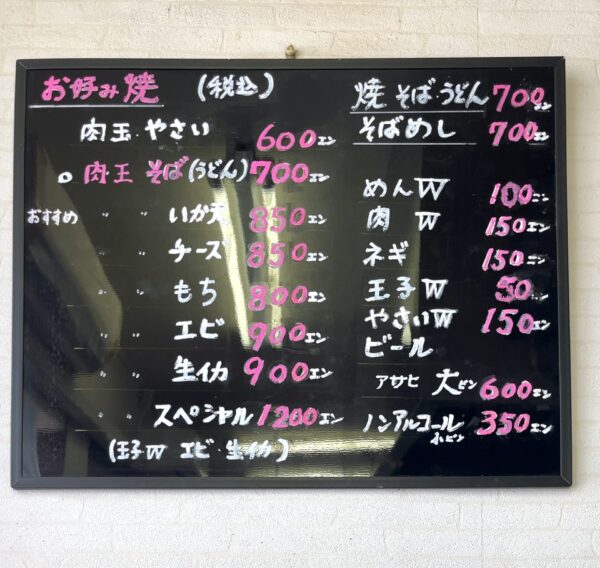 お好み焼 (税込)
肉玉 やさい 600エン
○ 肉玉 そば(うどん) 700エン
おすすめ 〃 〃 いか天 850エン
〃 〃 チーズ 850エン
〃 〃 もち 800エン
〃 〃 エビ 900エン
〃 〃 生イカ 900エン
〃 〃 スペシャル 1200エン
(玉子W エビ・生イカ)
焼そばうどん 700エン
そばめし 700エン
めんW 100エン
肉 W 150エン
ネギ 150エン
玉子W 50エン
やさいW 150エン
ビール
アサヒ 大ビン 600エン
ノンアルコール 小ビン 350エン